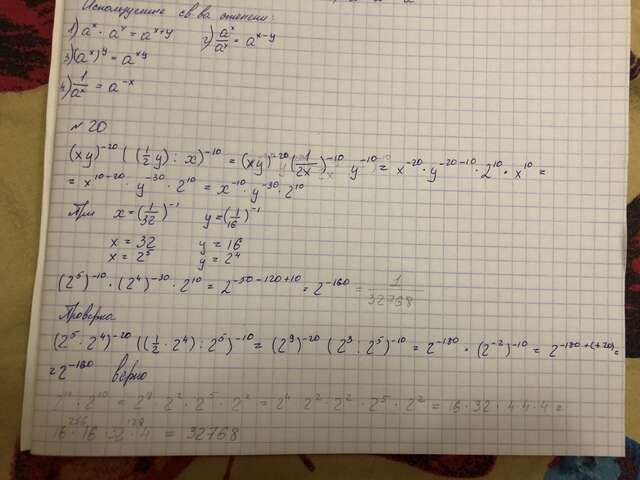 Используемые св.ва степени:
1) a^x · a^y = a^{x+y} 2) a^x/a^y = a^{x-y}
3) (a^x)^y = a^{xy}
4) 1/a^x = a^{-x}
№ 20
(xy)^{-20} ((1/2 y) : x)^{-10} = (xy)^{-20} (1/2x)^{-10} y^{-10} = x^{-20} · y^{-20-10} · 2^{10} · x^{10} =
= x^{10-20} · y^{-30} · 2^{10} = x^{-10} · y^{-30} · 2^{10}
При x = (1/32)^{-1} y = (1/16)^{-1}
x = 32 y = 16
x = 2^5 y = 2^4
(2^5)^{-10} · (2^4)^{-30} · 2^{10} = 2^{-50-120+10} = 2^{-160} = 1/32768
Проверка
(2^5 · 2^4)^{-20} ((1/2 · 2^4) : 2^5)^{-10} = (2^9)^{-20} (2^3 : 2^5)^{-10} = 2^{-180} · (2^{-2})^{-10} = 2^{-180+(+20)} =
= 2^{-160} верно
· 2^{10} = 2^2 · 2^5 · 2^2 = 2^4 · 2^2 · 2^2 · 2^5 · 2^2 = 16 · 32 · 4 · 4 · 4 =
16 · 16 · 32 · 4 = 32768